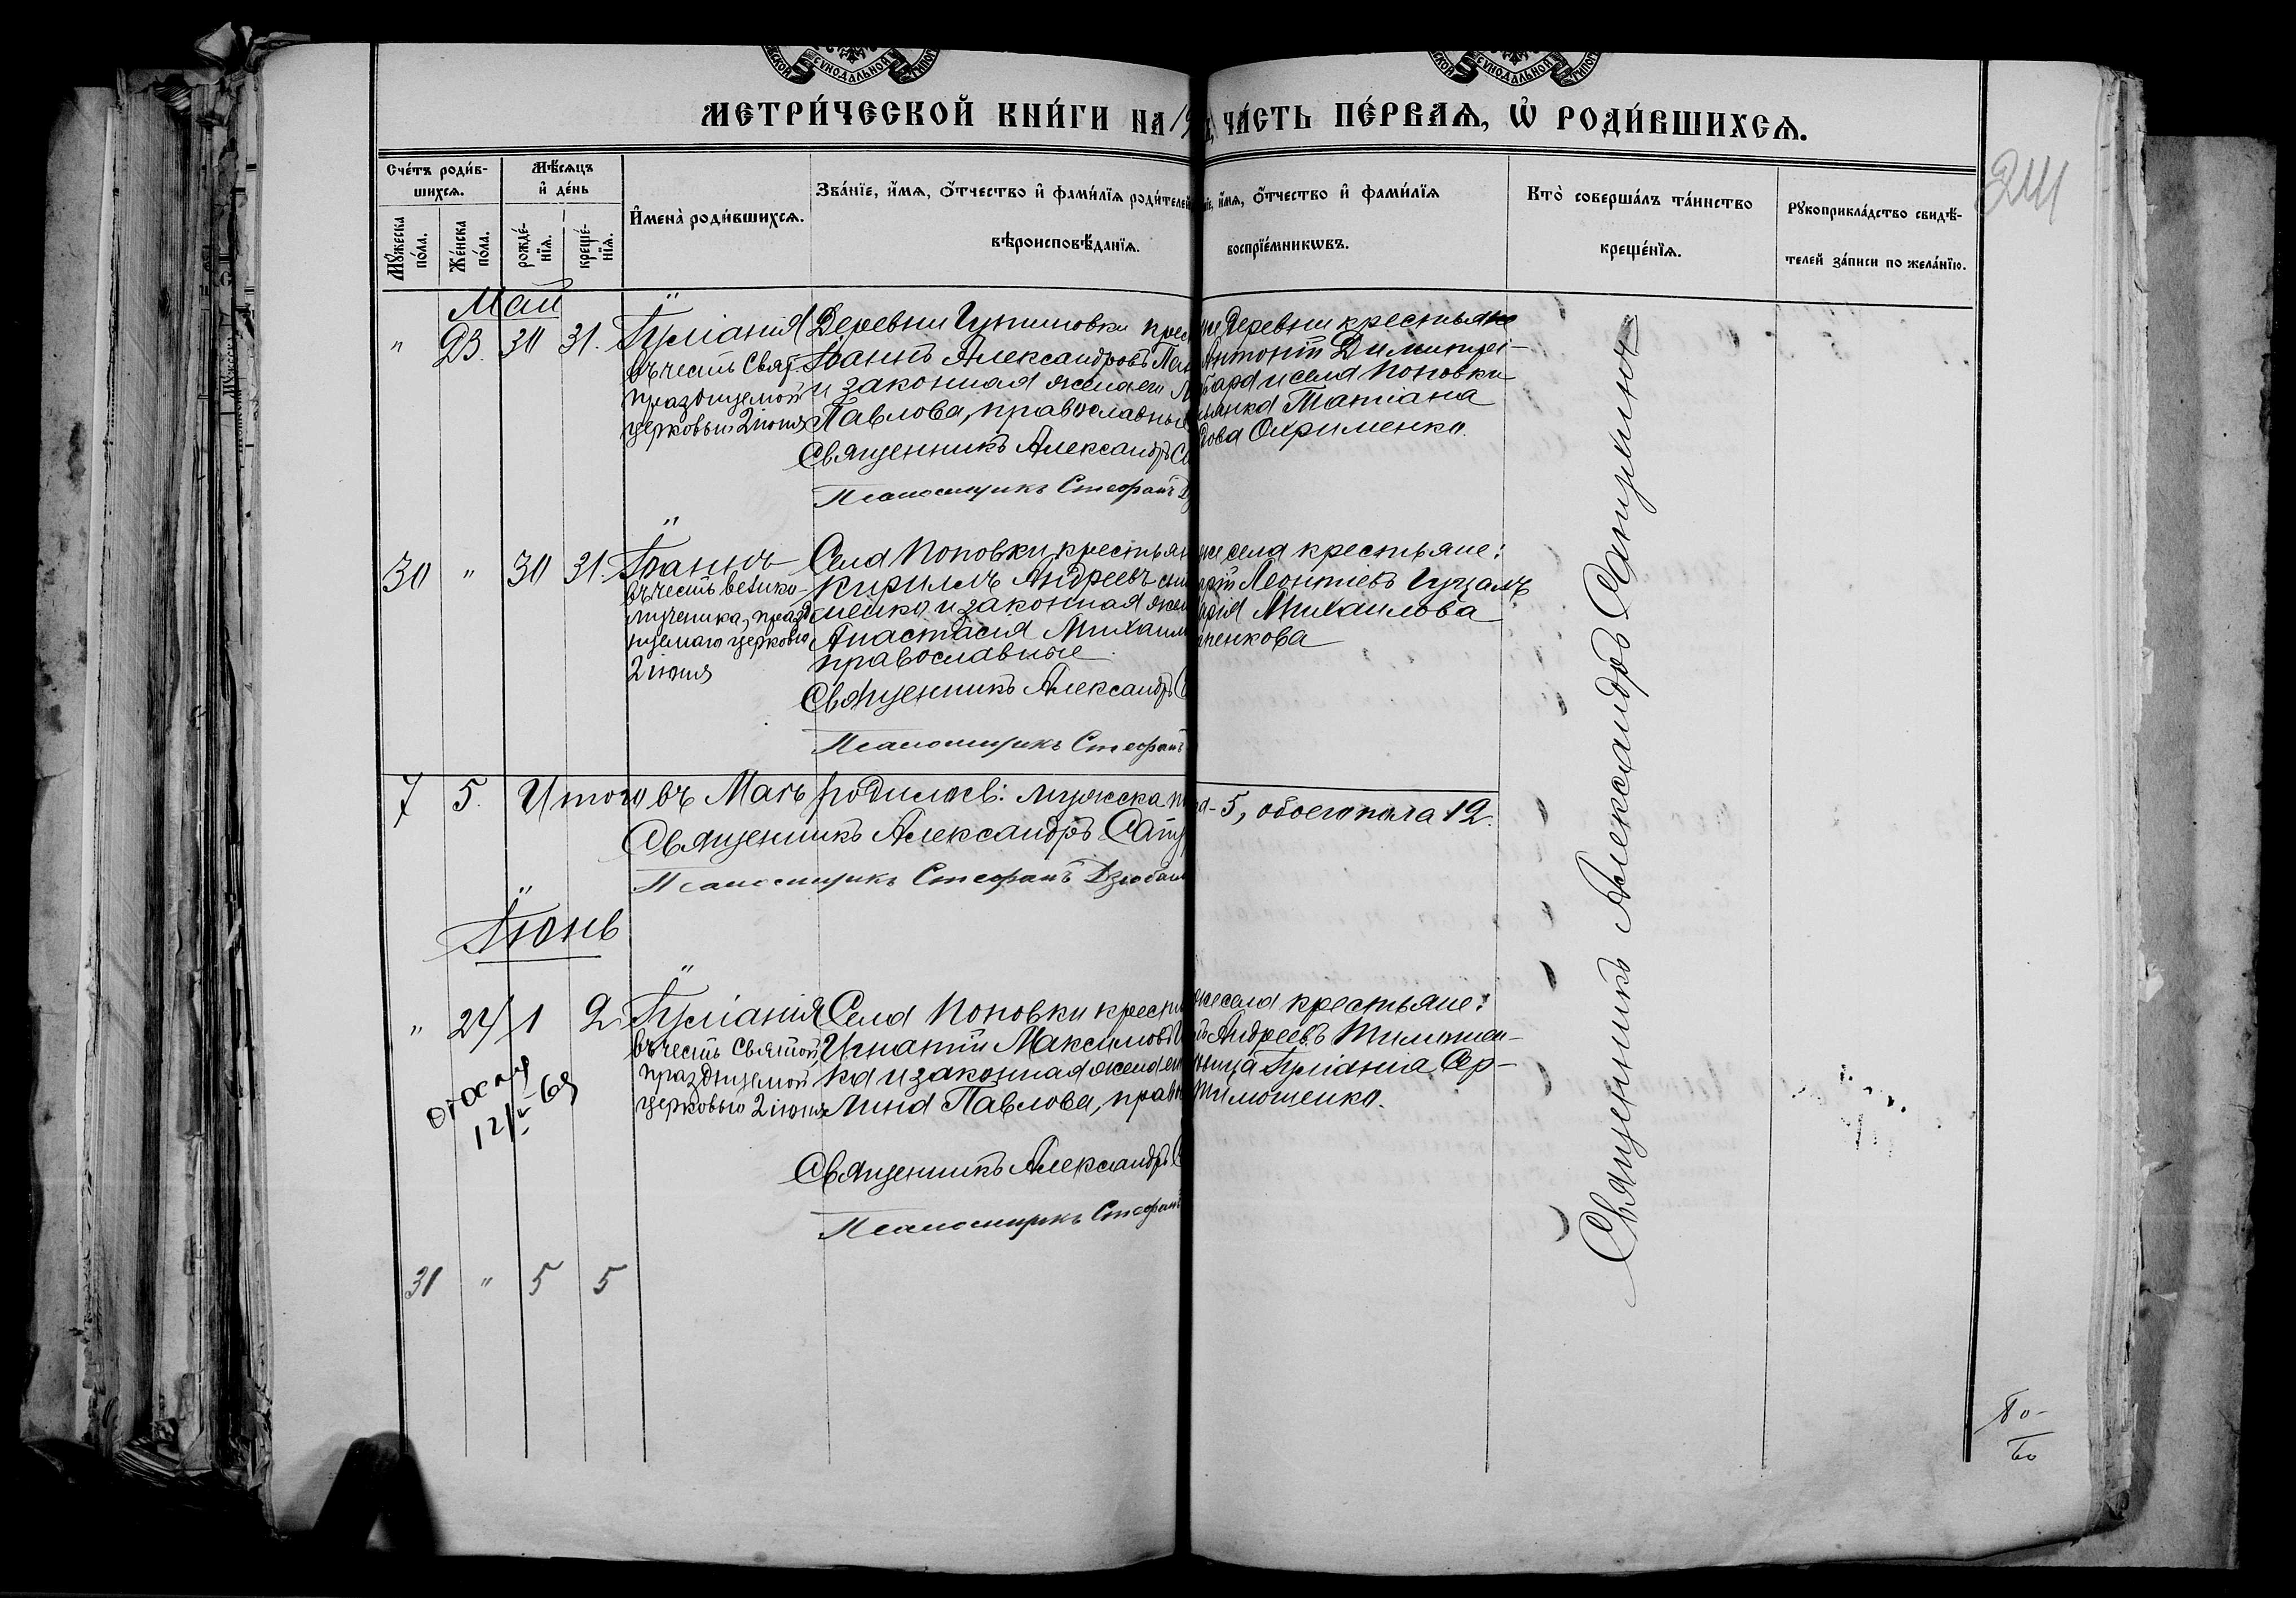 МЕТРИ́ЧЕСКОЙ КНИ́ГИ НА 19
ЧА́СТЬ ПЕ́РВАѦ, Ѡ РОДИ́ВШИХСѦ.
Сче́тъ роди́в-
шихсѧ.
Мѣ́сѧцъ
и҆ де́нь
Мꙋ́жеска
по́ла.
Же́нска
по́ла.
рожде́-
нїѧ.
креще́-
нїѧ.
И҆мена̀ роди́вшихсѧ.
Зва́нїе, и҆́мѧ, ѻ҆́тчество и҆ фами́лїѧ роди́телей
вѣроисповѣ́данїѧ.
и҆́мѧ, ѻ҆́тчество и҆ фами́лїѧ
воспрїе́мникѡвъ.
Кто̀ соверша́лъ та́инство
креще́нїѧ.
Рꙋкоприкла́дство свидѣ́-
телей за́писи по жела́нїю.
Май
" 23. 30 31.
Іуліанія
въ честь Свят
празднуемой
церковью 2 іюня
Деревни
Іоаннъ Александровъ
и законная жена его
Павлова, православные
Священникъ Александръ
Псаломщикъ Стефанъ
деревни крестьяне
Антоній Димитрі-
и села Поповки
Татіана
Охрименко.
30 " 30 31.
Іоаннъ
въ честь велико-
мученика, празд
нуемаго церковью
2 іюня
Села Поповки, крестьян
Кириллъ Андреевъ
менко и законная жен
Анастасія Михаил
православные
Священникъ Александръ
Псаломщикъ Стефанъ
же села крестьяне:
Леонтіевъ
Михаилова
енкова
7 5. Итого въ Маѣ родилось: мужеска
5, обоего пола 12.
Священникъ Александръ
Псаломщикъ Стефанъ
Іюнь
" 24 1 2
Іуліанія
въ честь Святой
празднуемой
церковью 2 іюня
Села Поповки крестьян
Игнатій Максимовъ
ка и законная жена ег
Павлова, прав
Священникъ Александръ
Псаломщикъ Стефанъ
же села крестьяне:
Андреевъ Тимошен-
Іуліанія Сер-
Тимошенко.
31 " 5 5
Священникъ Александръ